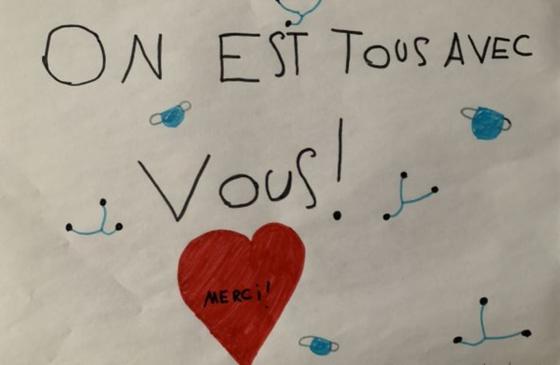 ON EST TOUS AVEC
VOUS!
MERCi!